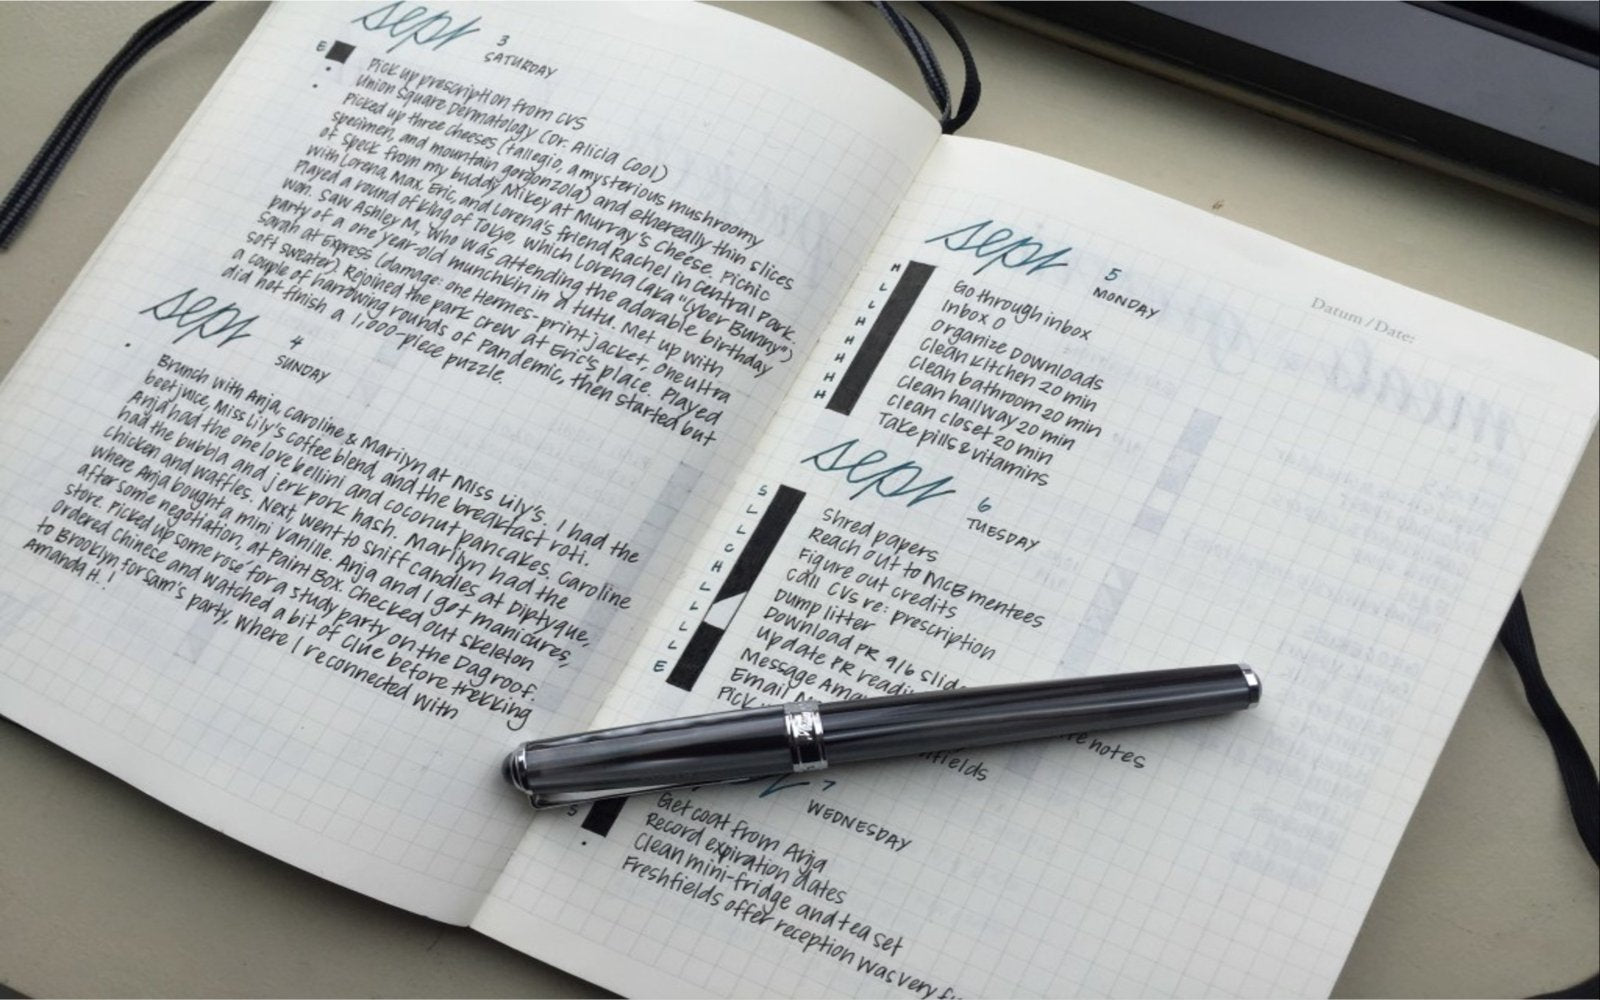 sept 3
SATURDAY
E
Pick up prescription from CVS
Union Square Dermatology (Dr. Alicia Cool)
Picked up three cheeses (tallegio, a mysterious mushroomy
specimen, and mountain gorgonzola) and ethereally thin slices
of speck from my buddy Mikey at Murray's Cheese. Picnic
with Lorena, Max, Eric, and Lorena's friend Rachel in Central Park.
Played a round of King of Tokyo, which Lorena (aka "Cyber Bunny")
won. Saw Ashley M, who was attending the adorable birthday
party of a one year-old munchkin in a tutu. Met up with
Sarah at Express (damage: one Hermes-print jacket, one ultra
soft sweater). Rejoined the park crew at Eric's place. Played
a couple of harrowing rounds of Pandemic, then started but
did not finish a 1,000-piece puzzle.
sept 4
SUNDAY
Brunch with Anja, Caroline & Marilyn at Miss Lily's. I had the
beet juice, Miss Lily's coffee blend, and the breakfast roti.
Anja had the one love bellini and coconut pancakes, Caroline
had the bubbla and jerk pork hash. Marilyn had the
chicken and waffles. Next, went to sniff candles at Diptyque,
where Anja bought a mini Vanille. Anja and I got manicures,
after some negotiation, at Paint Box. Checked out skeleton
store. Picked up some rosé for a study party on the Dag roof.
Ordered Chinese and watched a bit of Clue before trekking
to Brooklyn for Sam's party, where I reconnected with
Amanda H.!
Datum / Date:
sept 5
MONDAY
H Go through inbox
L Inbox 0
L Organize Downloads
H Clean kitchen 20 min
H Clean bathroom 20 min
H Clean hallway 20 min
H Clean closet 20 min
H Take pills & vitamins
sept 6
TUESDAY
S Shred papers
L Reach out to MCB mentees
L Figure out credits
C Call CVS re: prescription
H Dump litter
L Download PR 9/6 slid
L Update PR readi
L Message Ama
L Email
E Pick
re notes
fields
7
WEDNESDAY
Get coat from Anja
Record expiration dates
S Clean mini-fridge and tea set
Freshfields offer reception was very